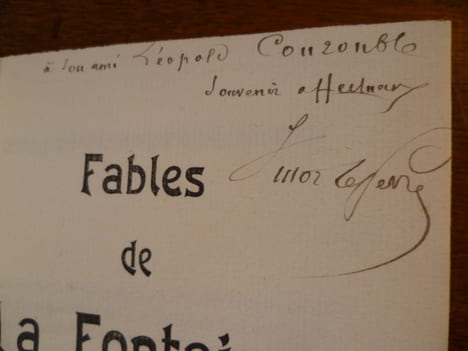 à son ami Léopold Courouble
Souvenir affectueux
Fables
de
La Fontai